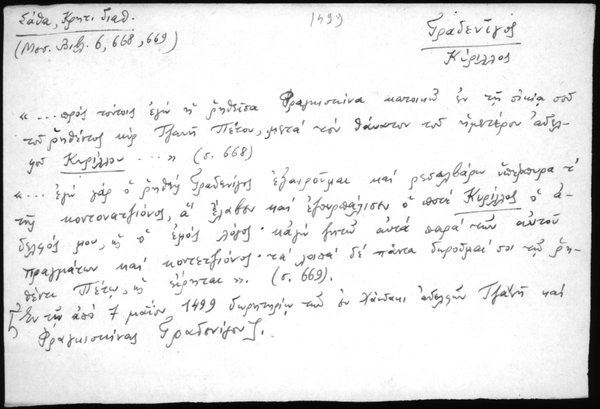 Σάθα, Κρητ. διαθ.
(Μεσ. Βιβλ. 6, 668, 669)
1499
Γραδενῖγος
Κύριλλος
«... πρὸς τούτοις ἐγὼ ἡ ῥηθεῖσα Φραγκισκίνα κατοικῶ ἐν τῇ οἰκίᾳ σοῦ
τοῦ ῥηθέντος κὺρ Τζανῆ Πέτου, μετὰ τὸν θάνατον τοῦ ἡμετέρου ἀδελ-
φοῦ Κυρίλλου ...» (σ. 668)
«... ἐγὼ γὰρ ὁ ῥηθεὶς Γραδενῖγος ἐξαιροῦμαι καὶ ρεσαλβάρω ὑπέρπυρα τ'
τῆς κοντονατζιόνος, ἃ ἔλαβεν καὶ ἐξουρπάλισεν ὁ ποτὲ Κύριλλος ὁ ἀ-
δελφός μου, ὡς ὁ ἐμὸς λόγος· κἀγὼ ζητῶ αὐτὰ παρὰ τῶν αὐτοῦ
πραγμάτων καὶ κοντετζιόνος· τὰ λοιπὰ δὲ πάντα δωροῦμαί σοι τῷ ῥη-
θέντι Πέτῳ, ὡς εἴρηται». (σ. 669).
[Ἐν τῇ ἀπὸ 7 μαΐου 1499 δωρητηρίῳ τῶν ἐν Χάνδακι ἀδελφῶν Τζανῆ καὶ
Φραγκισκίνας Γραδενίγου].